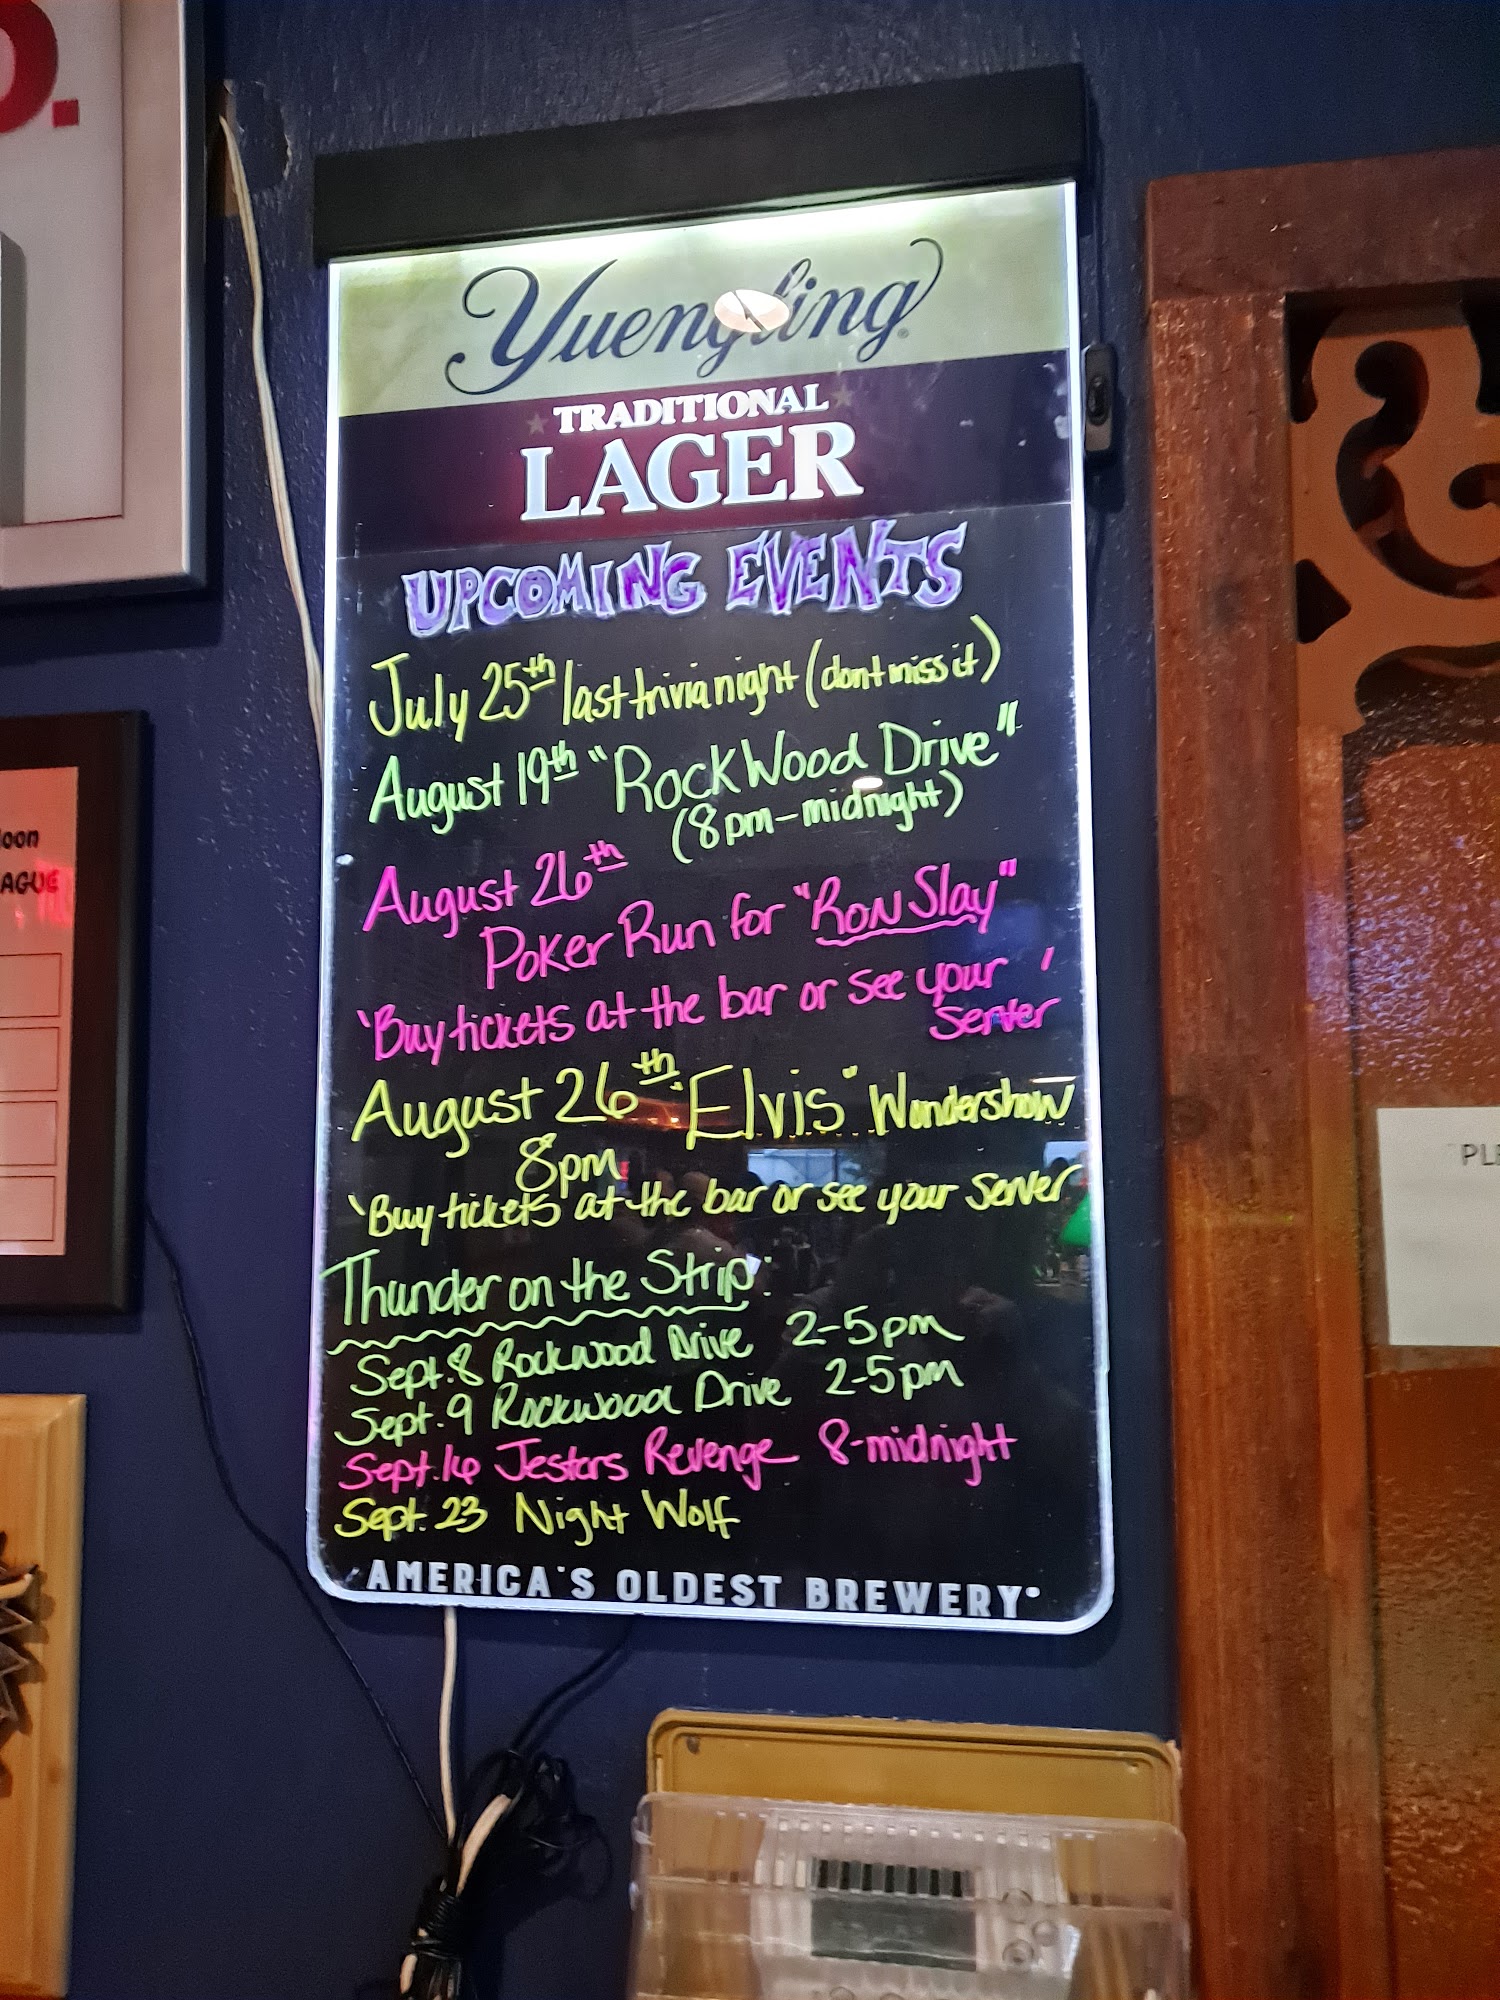 D.
Yuengling
TRADITIONAL
LAGER
UPCOMING EVENTS
July 25th last trivia night (dont miss it)
August 19th "RockWood Drive"
(8pm-midnight)
August 26th
Poker Run for "Ron Slay"
'Buy tickets at the bar or see your '
Server
August 26th "Elvis" Wondershow
8pm
'Buy tickets at the bar or see your Server
Thunder on the Strip:
Sept. 8 Rockwood Drive 2-5pm
Sept. 9 Rockwood Drive 2-5pm
Sept. 16 Jesters Revenge 8-midnight
Sept. 23 Night Wolf
AMERICA'S OLDEST BREWERY
oon
AGUE
PLE